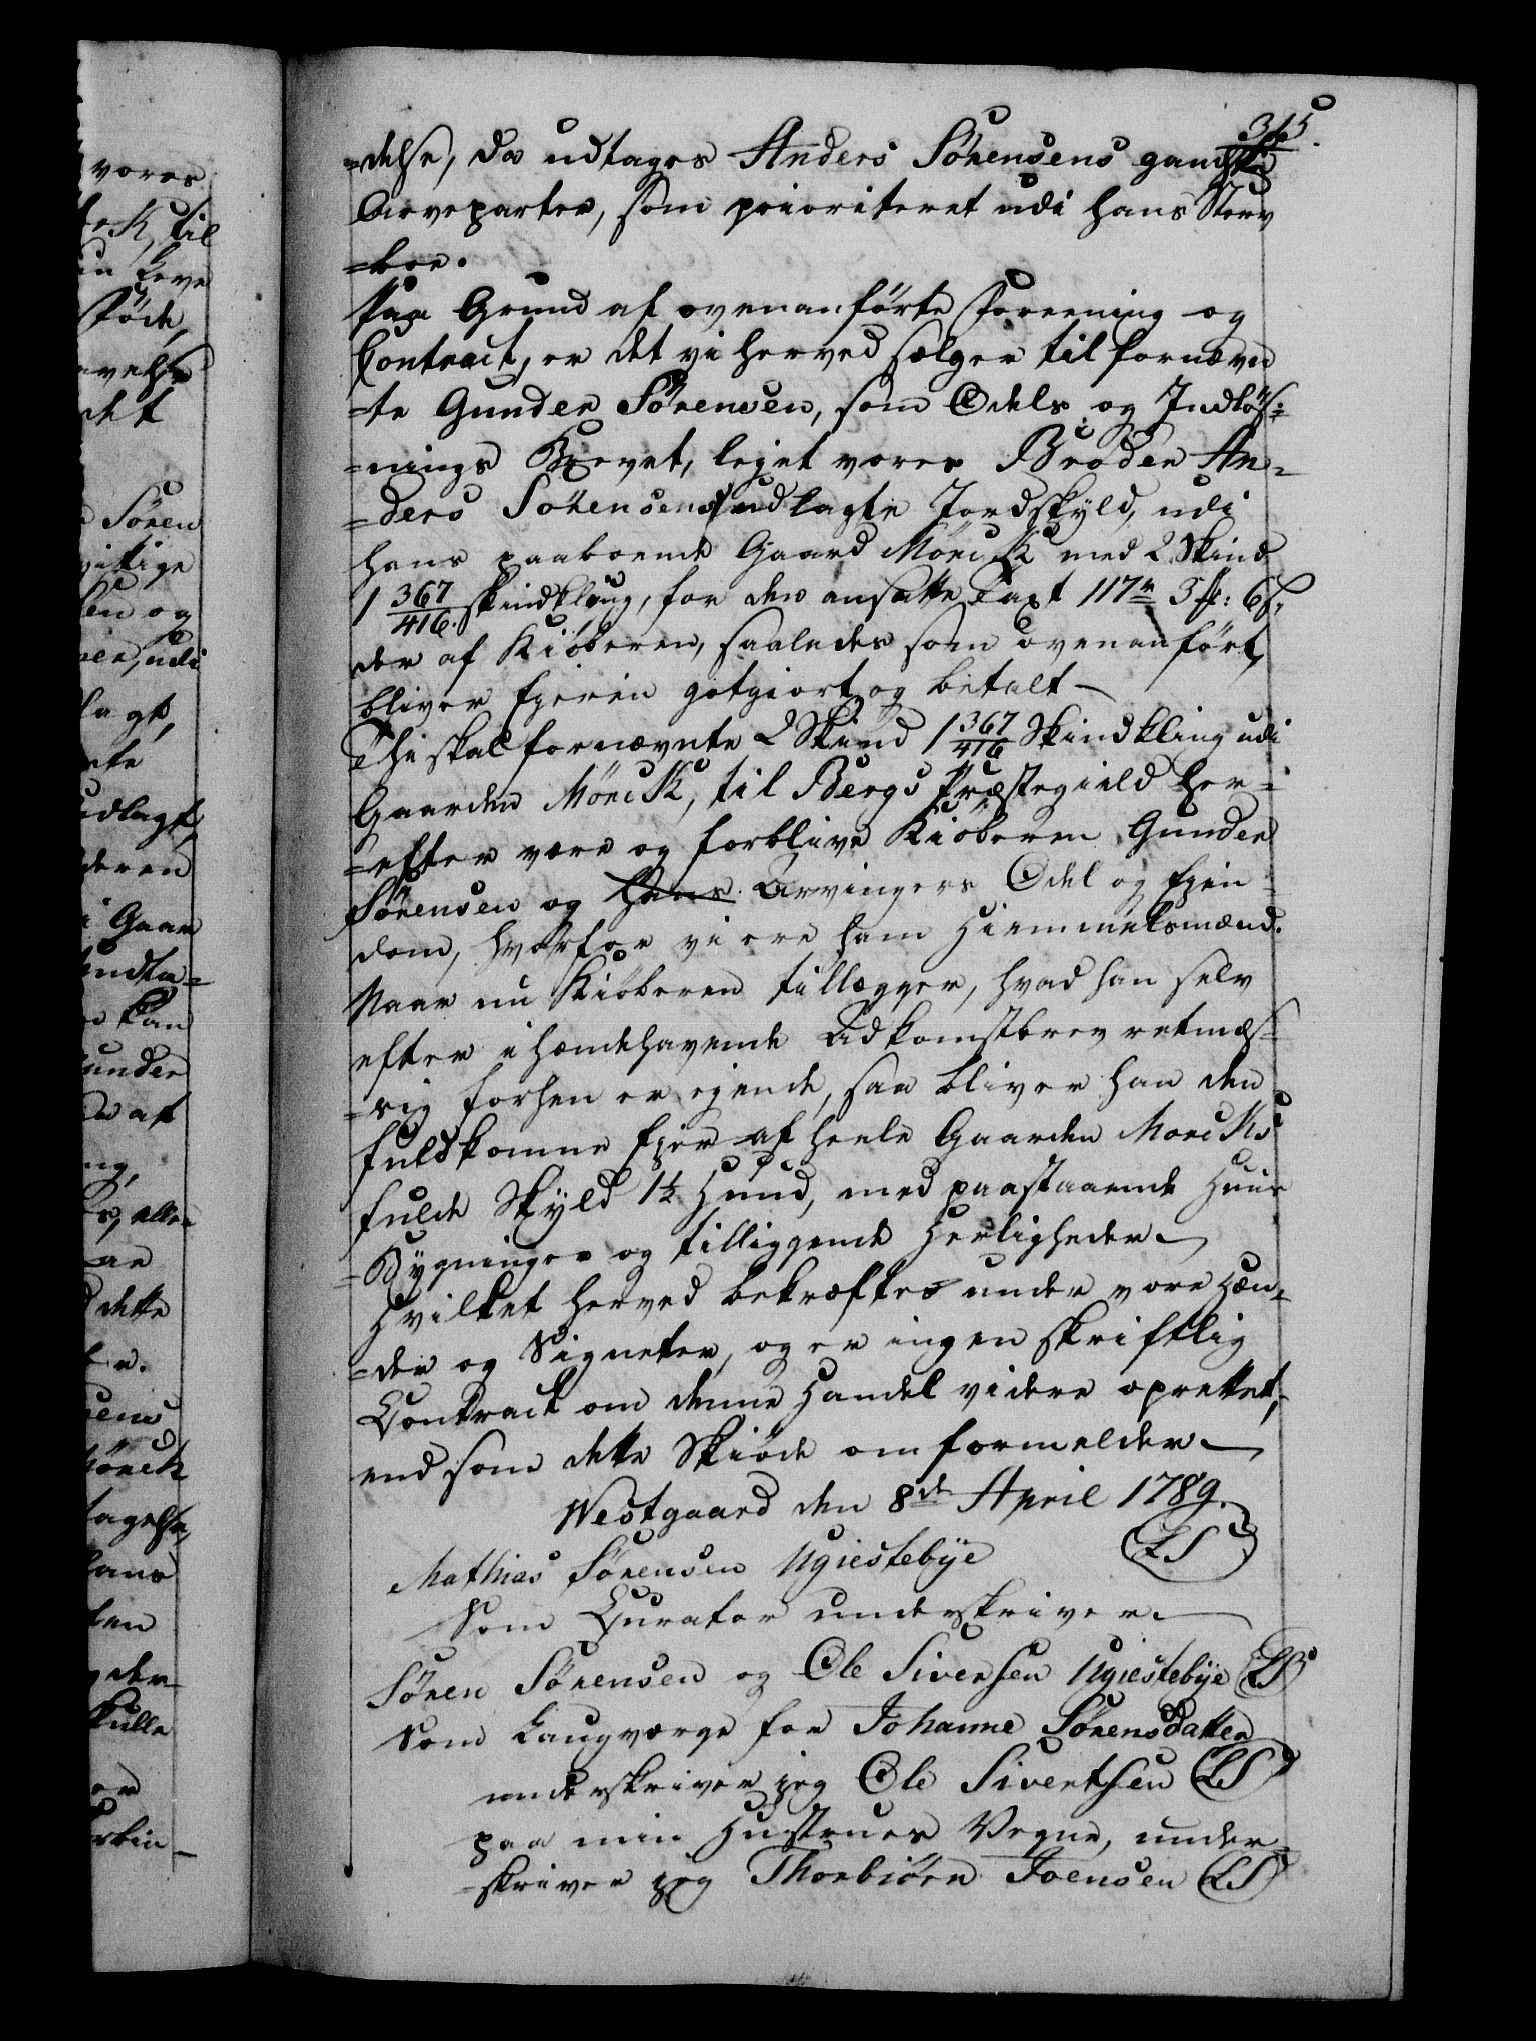 345.
=delse, da udtages Anders Sörensens gandske
Arveparter, som prioriteret udi hans Sterv
=boe.
Paa Grund af ovenanförte Foreening og
Contract, er det vi herved sælger til fornævn
=te Gunder Sörensen, som Odels og Indlös=
=nings Berettiget vores Broder An=
=ders Sörensens udlagte Jordskyld, udi
hans paaboende Gaard Mörck med 2 Skind
1 367/416 skindkling, for den ansatte Taxt 117 rd 3 f: 6 s,
der af Kiöberen, saaledes som ovenanfört,
bliver Ejerin gotgiort og betalt —
Thi skal fornævnte 2 Skind 1 367/416 Skindkling udi
Gaarden Mörck, til Bergs Præstegield her=
=efter være og forblive Kiöberen Gunder
Sörensen og Hans Arvingers Odel og Ejen=
dom, hvorfor vi ere ham Hiemmelsmænd.
Naar nu Kiöberen tillægger, hvad han selv
efter ihændehavende Adkomstbrev retmæs=
=sig forhen er ejende, saa bliver han den
fuldkomne Ejer af heele Gaarden Morcks
fulde Skyld 1½ Huud, med paastaaende Huus
=Bygninger og tilliggende Herligheder —
Hvilket herved bekræftes under vore Hæn=
=der og Signeter, og er ingen skriftlig
Contract om denne Handel videre oprettet,
end som dette Skiöde omformelder —
Westgaard den 8de April 1789.
Mathias Sörensen Ugiestebÿe (LS)
Som Curator underskriver —
Sören Sörensen og Ole Siversen Ugiestebÿe (LS)
Som Laugværge for Johanne Sörensdatter
underskriver jeg Ole Sivertsen (LS)
paa min Hustrues Vegne, under=
=skriver jeg Thorbiörn Joensen (LS)